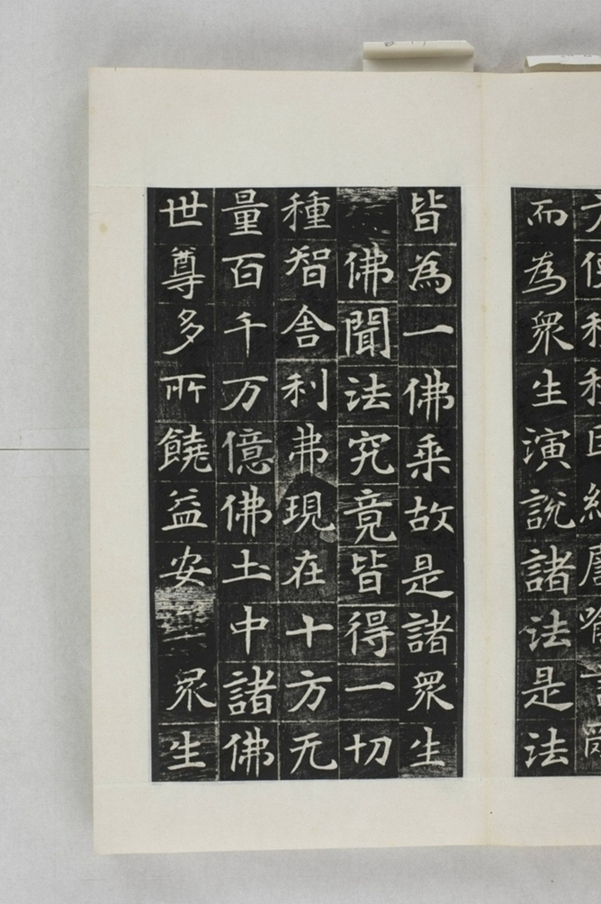 而為衆生演說諸法是法
皆為一佛乘故是諸衆生
佛聞法究竟皆得一切
種智舍利弗現在十方无
量百千万億佛土中諸佛
世尊多所饒益安衆生